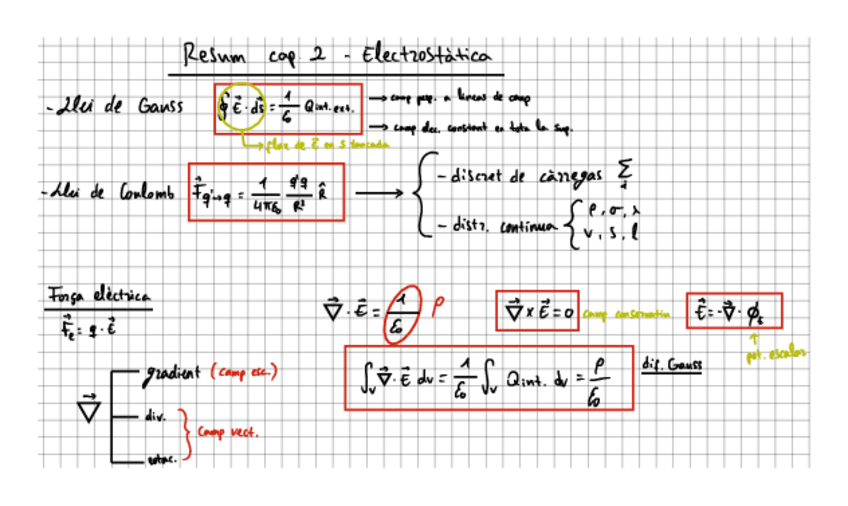 Resum cap. 2 - Electrostàtica
- Llei de Gauss ∮ E⃗ · ds⃗ = 1/ε₀ Qint. ext. → camp perp. a línees de camp
→ camp elec. constant en tota la sup.
→ flux de E⃗ en S tancada
- Llei de Coulomb F⃗q'→q = 1/4πε₀ q'q/R² R̂ → { - discret de càrregas Σ
- distr. continua { ρ, σ, λ
v, s, l
Força elèctrica
F⃗e = q · E⃗
∇⃗ · E⃗ = 1/ε₀ ρ
∇⃗ x E⃗ = 0 camp conservatiu
E⃗ = -∇⃗ · ϕ
↑
pot. escalar
∫v ∇⃗ · E⃗ dv = 1/ε₀ ∫v Qint. dv = ρ/ε₀ dif. Gauss
∇⃗
gradient (camp esc.)
div.
rotac.
} camp vect.